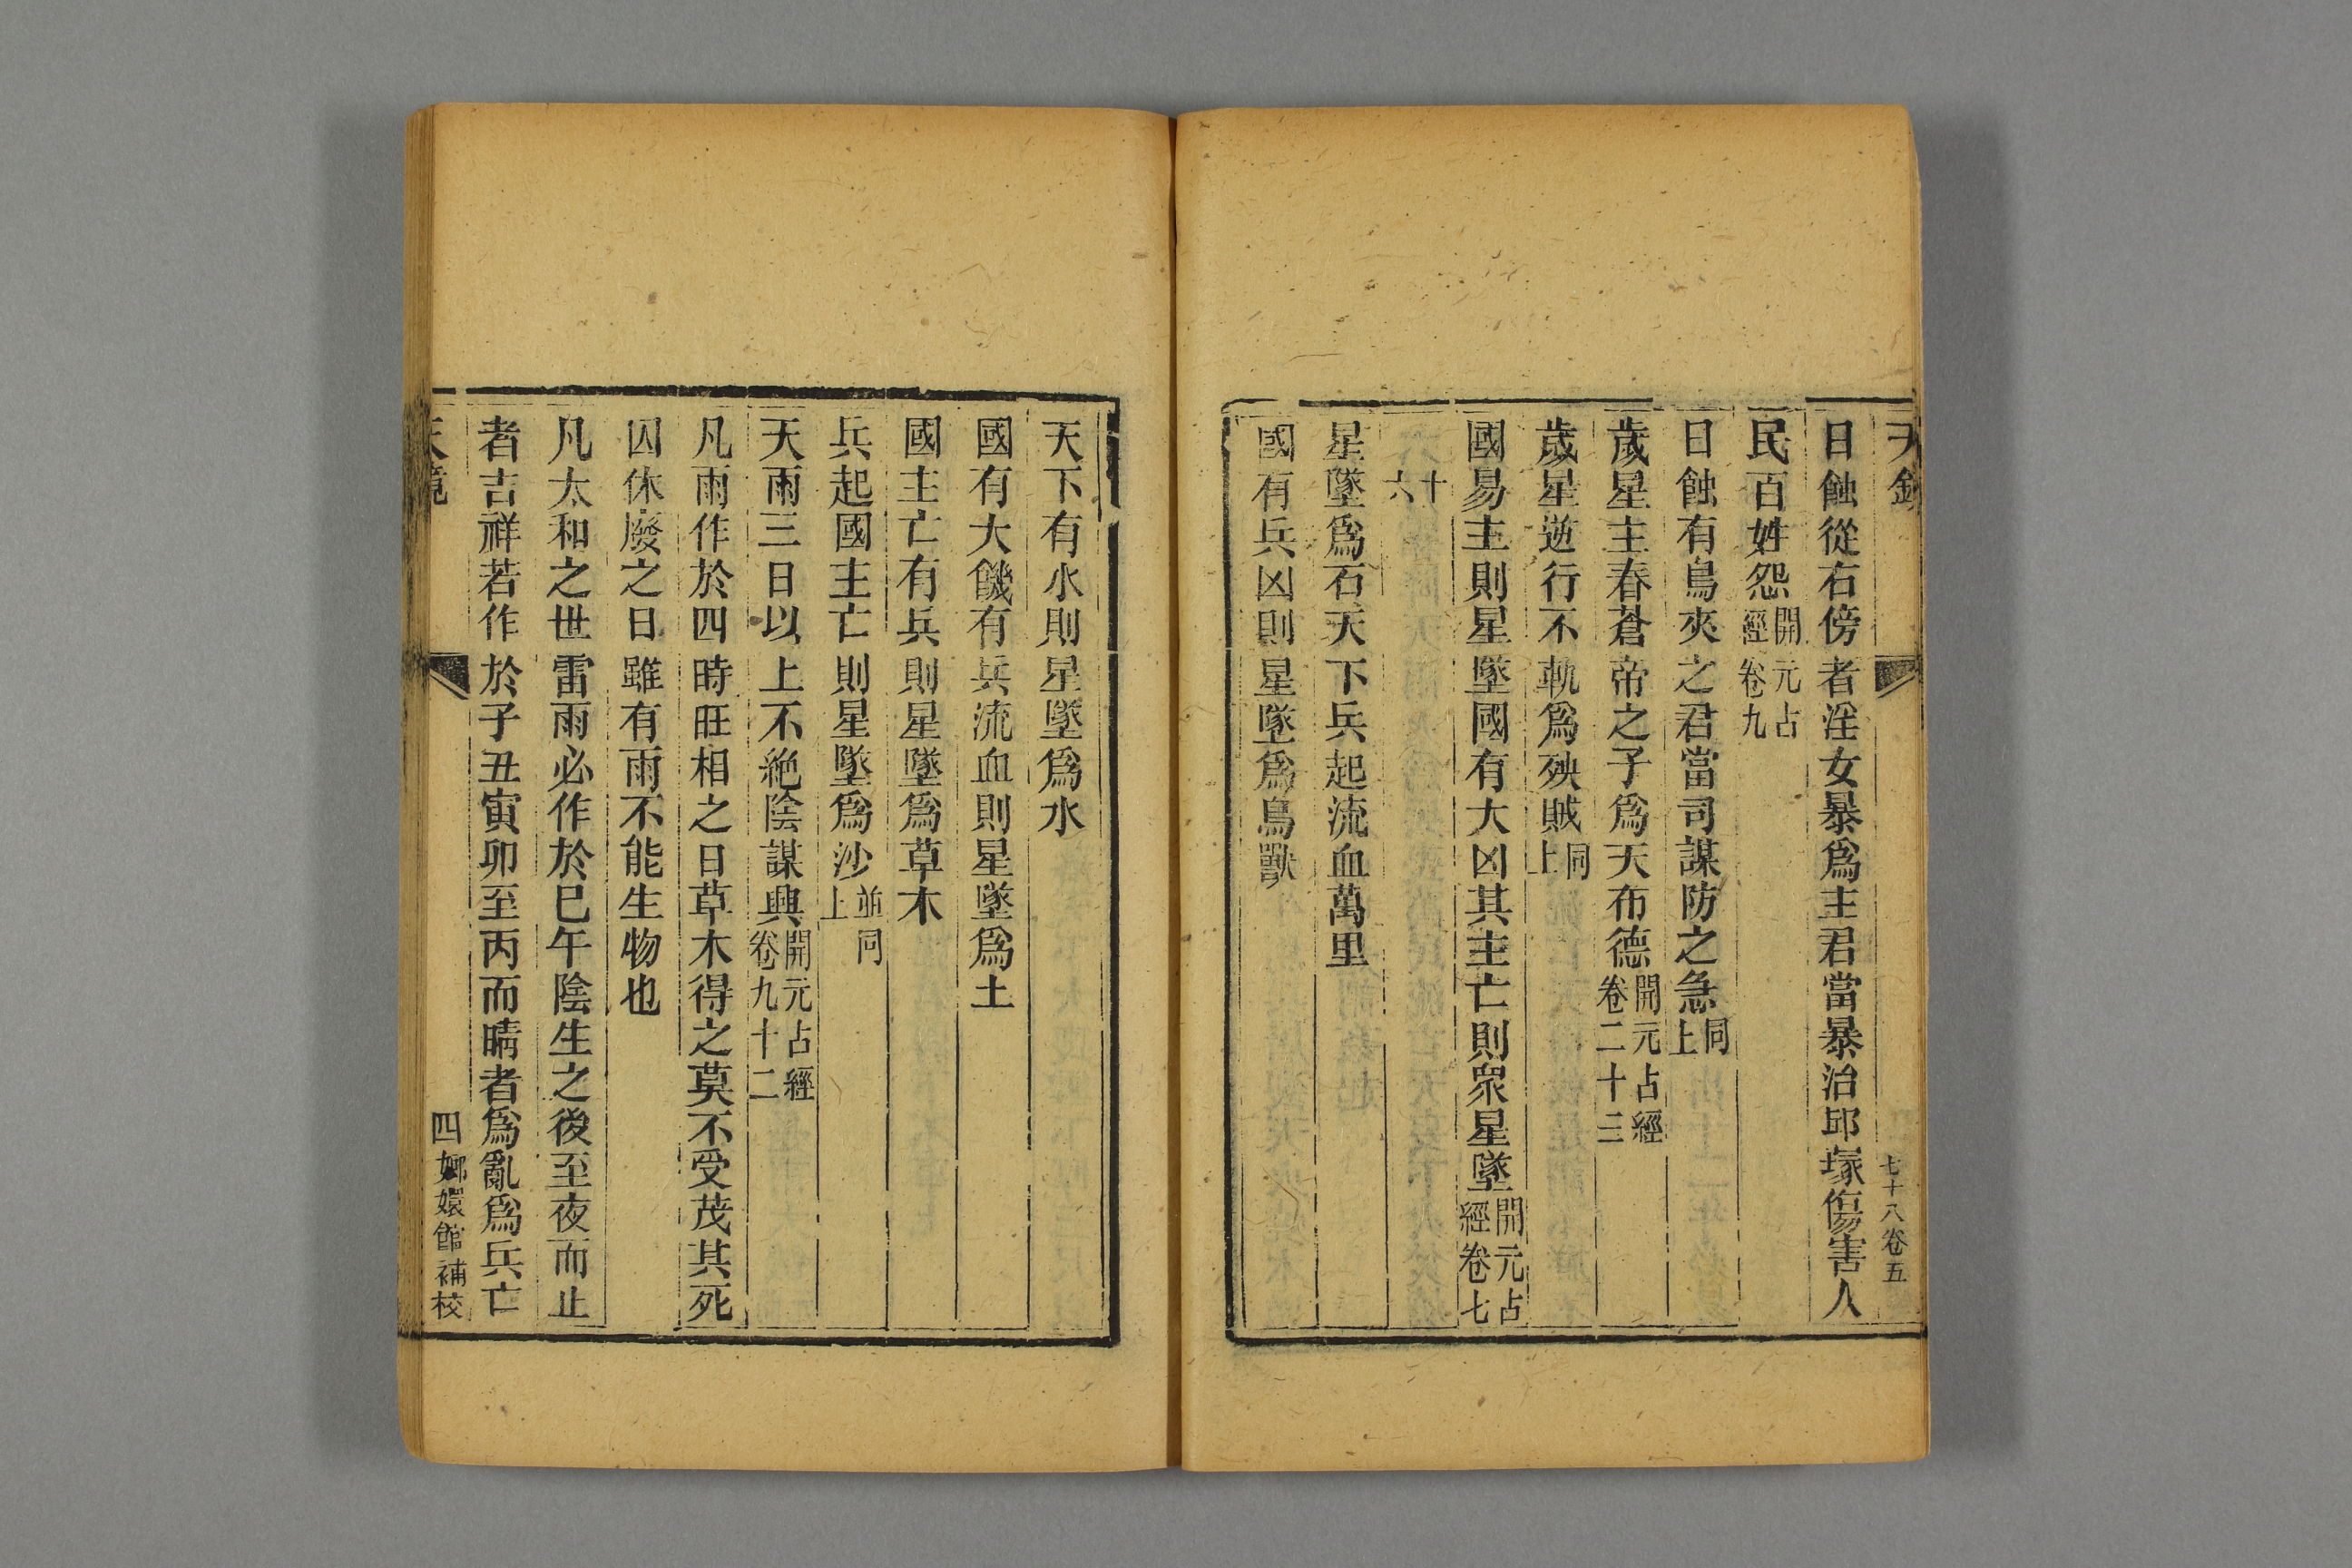 七十八卷五
日蝕從右傍者淫女暴爲主君當暴治邱塚傷害人
民百姓怨開元占經卷九
日蝕有鳥夾之君當司謀防之急同上
歲星主春蒼帝之子爲天布德開元占經卷二十三
歲星逆行不軌爲殃賊同上
國易主則星墜國有大凶其主亡則衆星墜開元占經卷七
十六
星墜爲石天下兵起流血萬里
國有兵凶則星墜爲鳥獸
天下有水則星墜爲水
國有大饑有兵流血則星墜爲土
國主亡有兵則星墜爲草木
兵起國主亡則星墜爲沙並同上
天雨三日以上不絶陰謀興開元占經卷九十二
凡雨作於四時旺相之日草木得之莫不受茂其死
囚休廢之日雖有雨不能生物也
凡太和之世雷雨必作於巳午陰生之後至夜而止
者吉祥若作於子丑寅卯至丙而晴者爲亂爲兵亡
天鏡
四
嫏嬛館補校